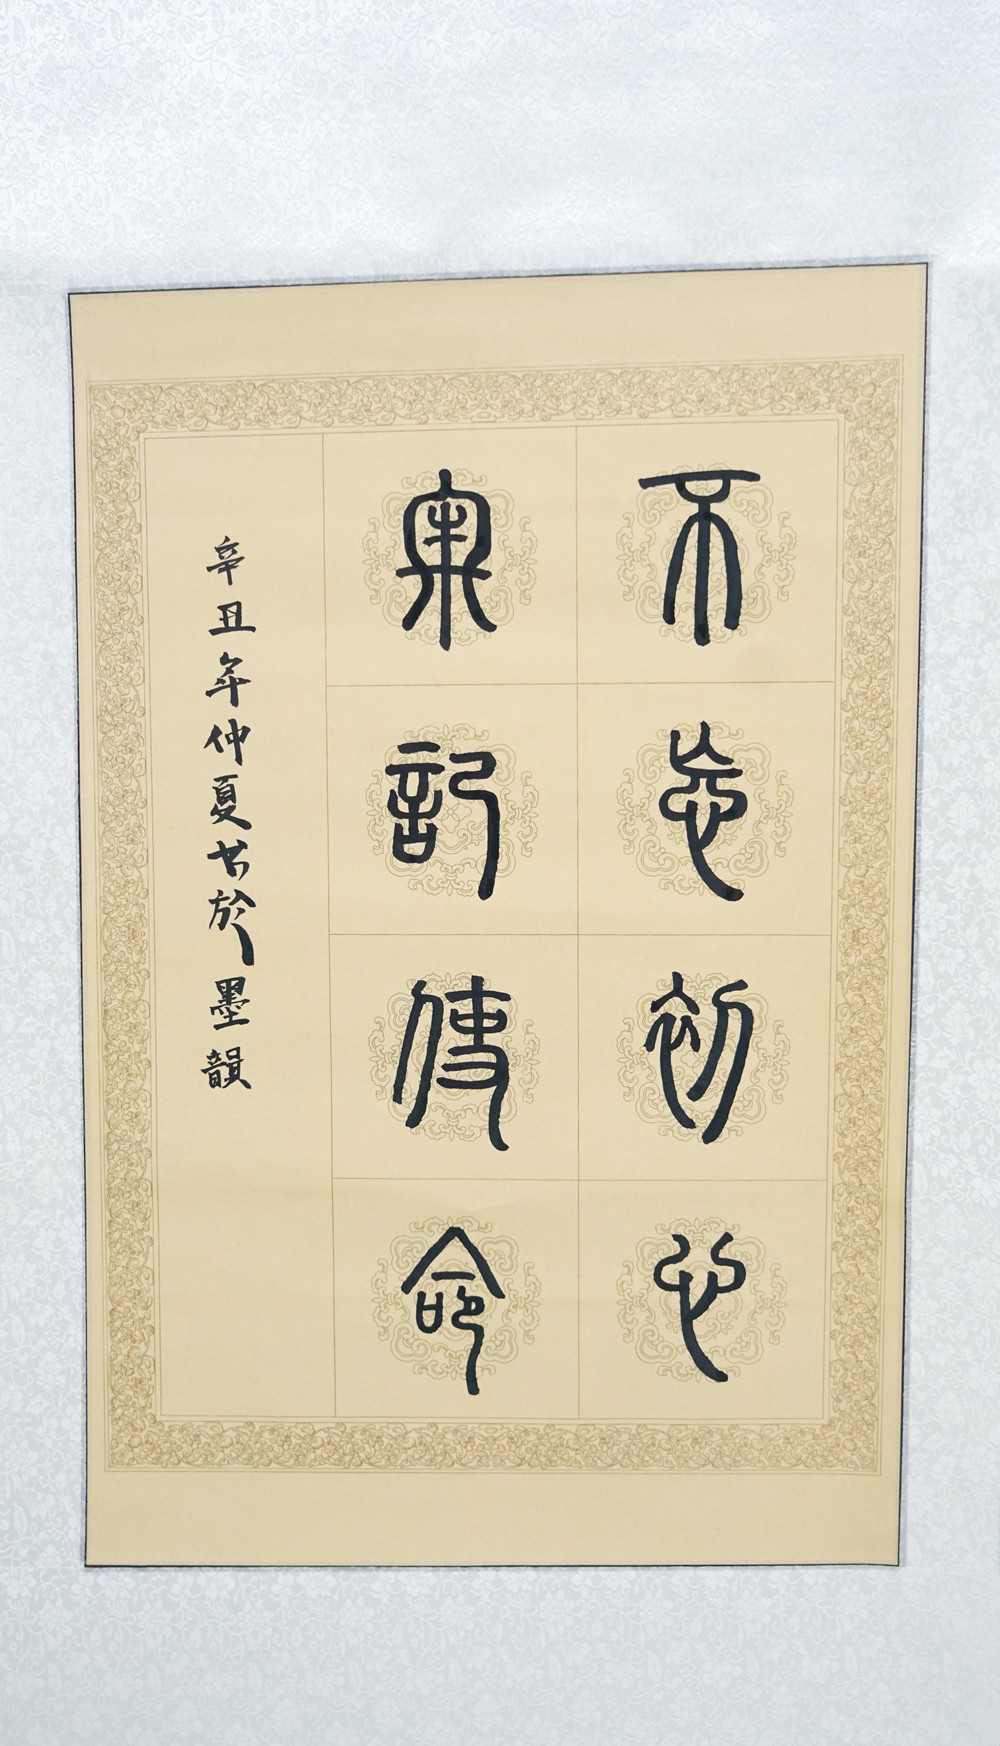 不忘初心
牢記使命
辛丑年仲夏书於墨韻